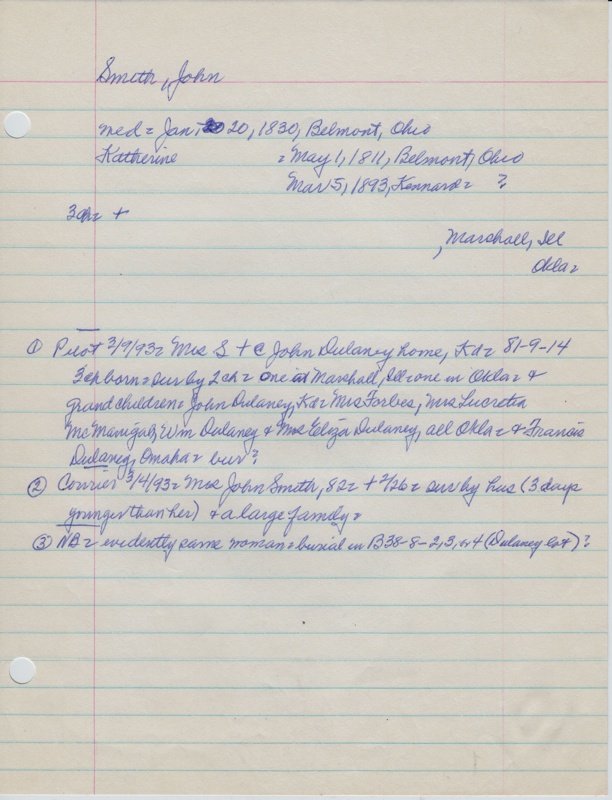 Smith, John
med = Jan. 20 20, 1830, Belmont, Ohio
Katherine = May 1, 1811, Belmont, Ohio
Mar 5, 1893, Kennard = ?
3ch = +
, Marshall, Ill
Okla =
① Pilot 3/9/93 = Mrs S + @ John Dulaney home, Kd = 81-9-14
3 ch born = sur by 2 ch = one at Marshall, Ill = one in Okla = &
grandchildren = John Dulaney, Kd = Mrs Forbes, Mrs Lucretia
McManigal, Wm Dulaney & Mrs Eliza Dulaney, all Okla = & Francis
Dulaney, Omaha = bur?
② Courier 3/4/93 = Mrs John Smith, 82 = + 2/26 = sur by hus (3 days
younger than her) & a large family =
③ NB = evidently same woman = burial in B38-8-2,3, or 4 (Dulaney lot)?